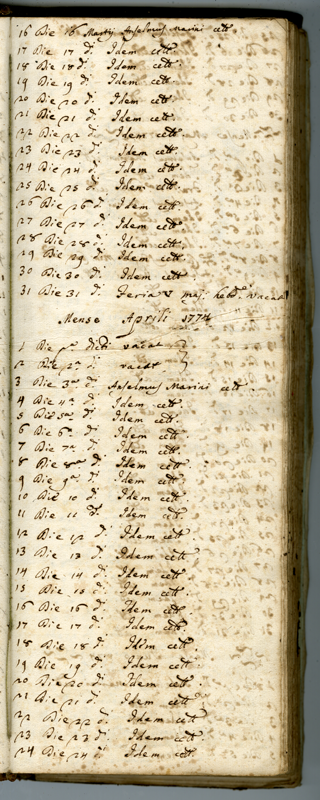 16 Die 16 Martij Anselmus Marini cett
17 Die 17 d: Idem cett.
18 Die 18 d: Idem cett.
19 Die 19 d: Idem cett.
20 Die 20 d: Idem cett.
21 Die 21 d: Idem cett.
22 Die 22 d: Idem cett.
23 Die 23 d: Idem cett.
24 Die 24 d: Idem cett.
25 Die 25 d: Idem cett.
26 Die 26 d: Idem cett.
27 Die 27 d: Idem cett.
28 Die 28 d: Idem cett.
29 Die 29 d: Idem cett.
30 Die 30 d: Idem cett.
31 Die 31 d: Feria V maj: hebd. vacat
Mense Aprili 1774
1 Die pa dicti vacat
2 Die 2a d: vacat
3 Die 3a d: Anselmus Marini cett.
4 Die 4a d: Idem cett.
5 Die 5a d: Idem cett.
6 Die 6a d: Idem cett.
7 Die 7a d: Idem cett.
8 Die 8a d: Idem cett.
9 Die 9a d: Idem cett.
10 Die 10 d: Idem cett.
11 Die 11 d: Idem cett.
12 Die 12 d: Idem cett.
13 Die 13 d: Idem cett.
14 Die 14 d: Idem cett.
15 Die 15 d: Idem cett.
16 Die 16 d: Idem cett.
17 Die 17 d: Idem cett.
18 Die 18 d: Idem cett.
19 Die 19 d: Idem cett.
20 Die 20 d: Idem cett.
21 Die 21 d: Idem cett.
22 Die 22 d: Idem cett.
23 Die 23 d: Idem cett.
24 Die 24 d: Idem cett.